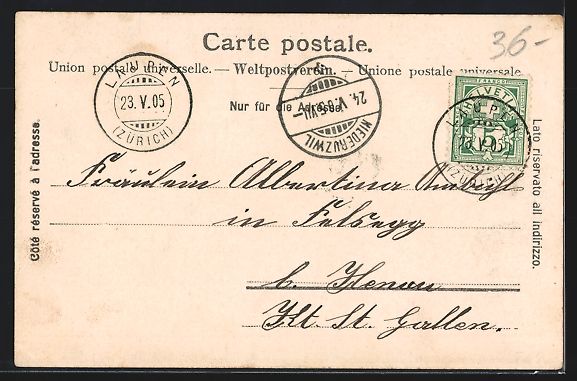 36-
Carte postale.
Union postale universelle. — Weltpostverein. — Unione postale universale
Nur für die Adresse.
LAUPEN
23.V.05
(ZÜRICH)
24.V.05.VII-
NIEDERUZWIL
FRANCO
HELVETIA
(ZÜRICH)
Côté réservé à l'adresse.
Lato riservato all indirizzo.
Fräulein Albertina Ambühl
in Felsegg
b. Henau
Kt. St. Gallen.